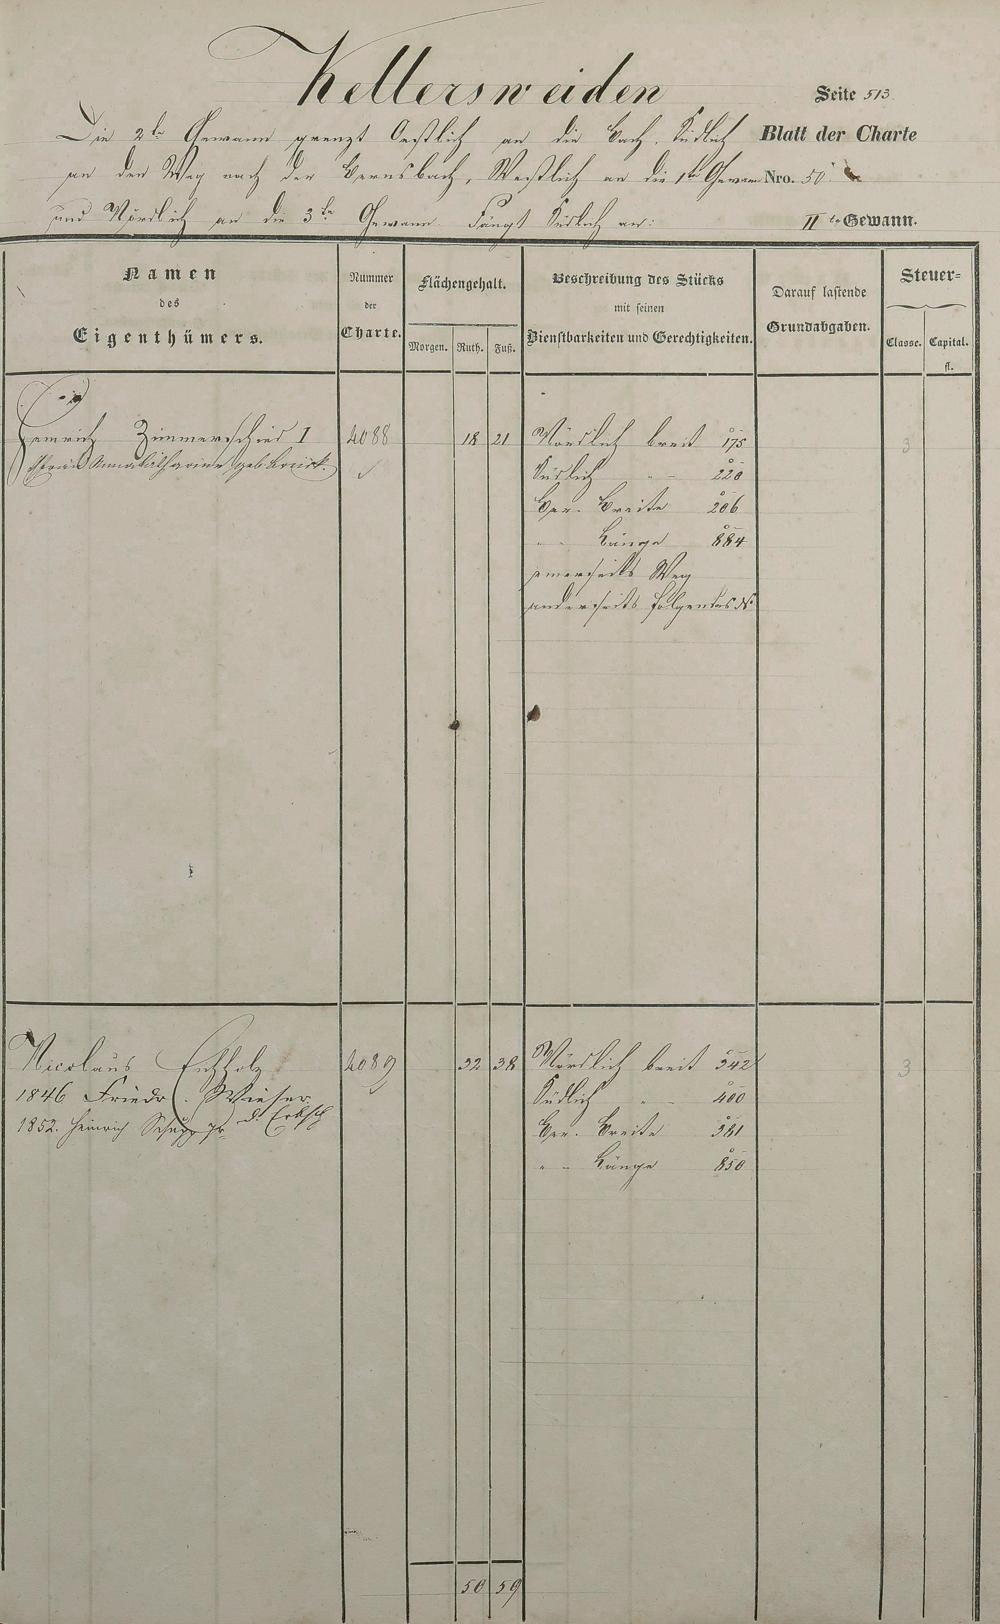 Kellersweiden
Seite 513
Die 2te Gewann grenzt Oestlich an die Bach, Südlich
Blatt der Charte
an den Weg nach der Bernsbach, Westlich an die 1te Gewann
Nro. 50
und Nördlich an die 3te Gewann. Fängt Südlich an:
IIte Gewann.
Namen des Eigenthümers.
Nummer der Charte.
Flächengehalt.
Morgen. Ruth. Fuß.
Beschreibung des Stücks
mit seinen
Dienstbarkeiten und Gerechtigkeiten.
Darauf lastende
Grundabgaben.
Steuer=
Classe. Capital.
fl.
Heinrich Zimmerschied I 4088 18 21 Nördlich breit 175 3
Südlich " - 220
Ber. Breite 206
" - Länge 884
einerseits Weg
anderseits folgendes N.
Nicolaus 4089 32 38 Nördlich breit 342 3
1846 Friedr. Wieser
Südlich " - 400
1852. Heinrich Schupp jr. d.
Ber. Breite 381
" - Länge 850
50 59